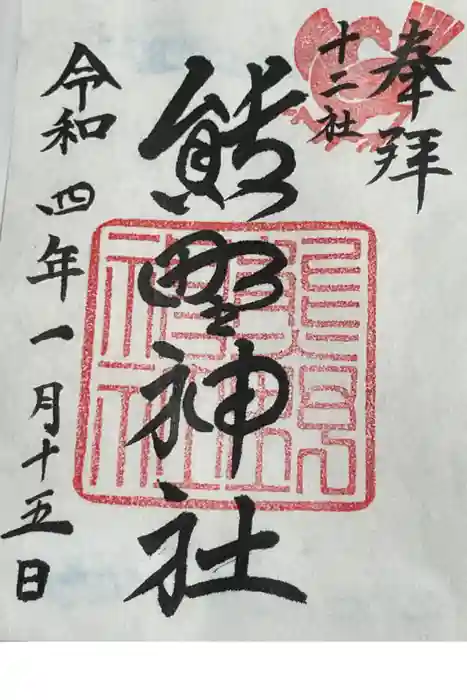 奉拝
十二社
熊野神社
令和四年一月十五日